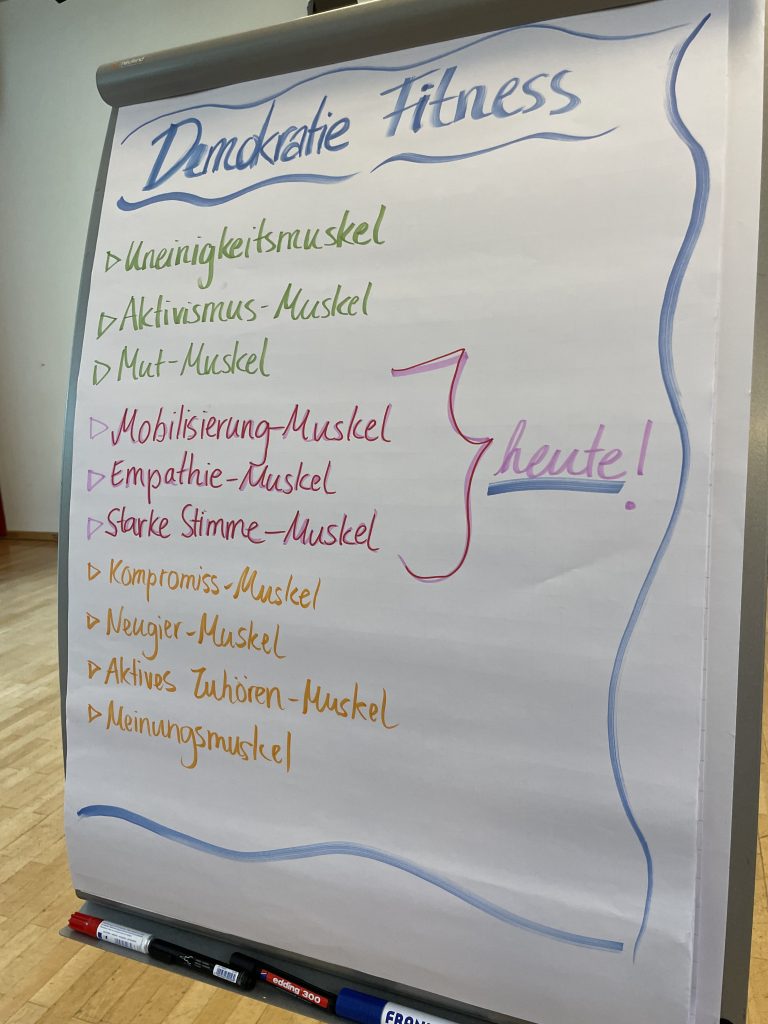 neuland
Demokratie Fitness
Uneinigkeitsmuskel
Aktivismus-Muskel
Mut-Muskel
Mobilisierung-Muskel
Empathie-Muskel
Starke Stimme-Muskel
heute!
Kompromiss-Muskel
Neugier-Muskel
Aktives Zuhören-Muskel
Meinungsmuskel
edding 300
FRANK